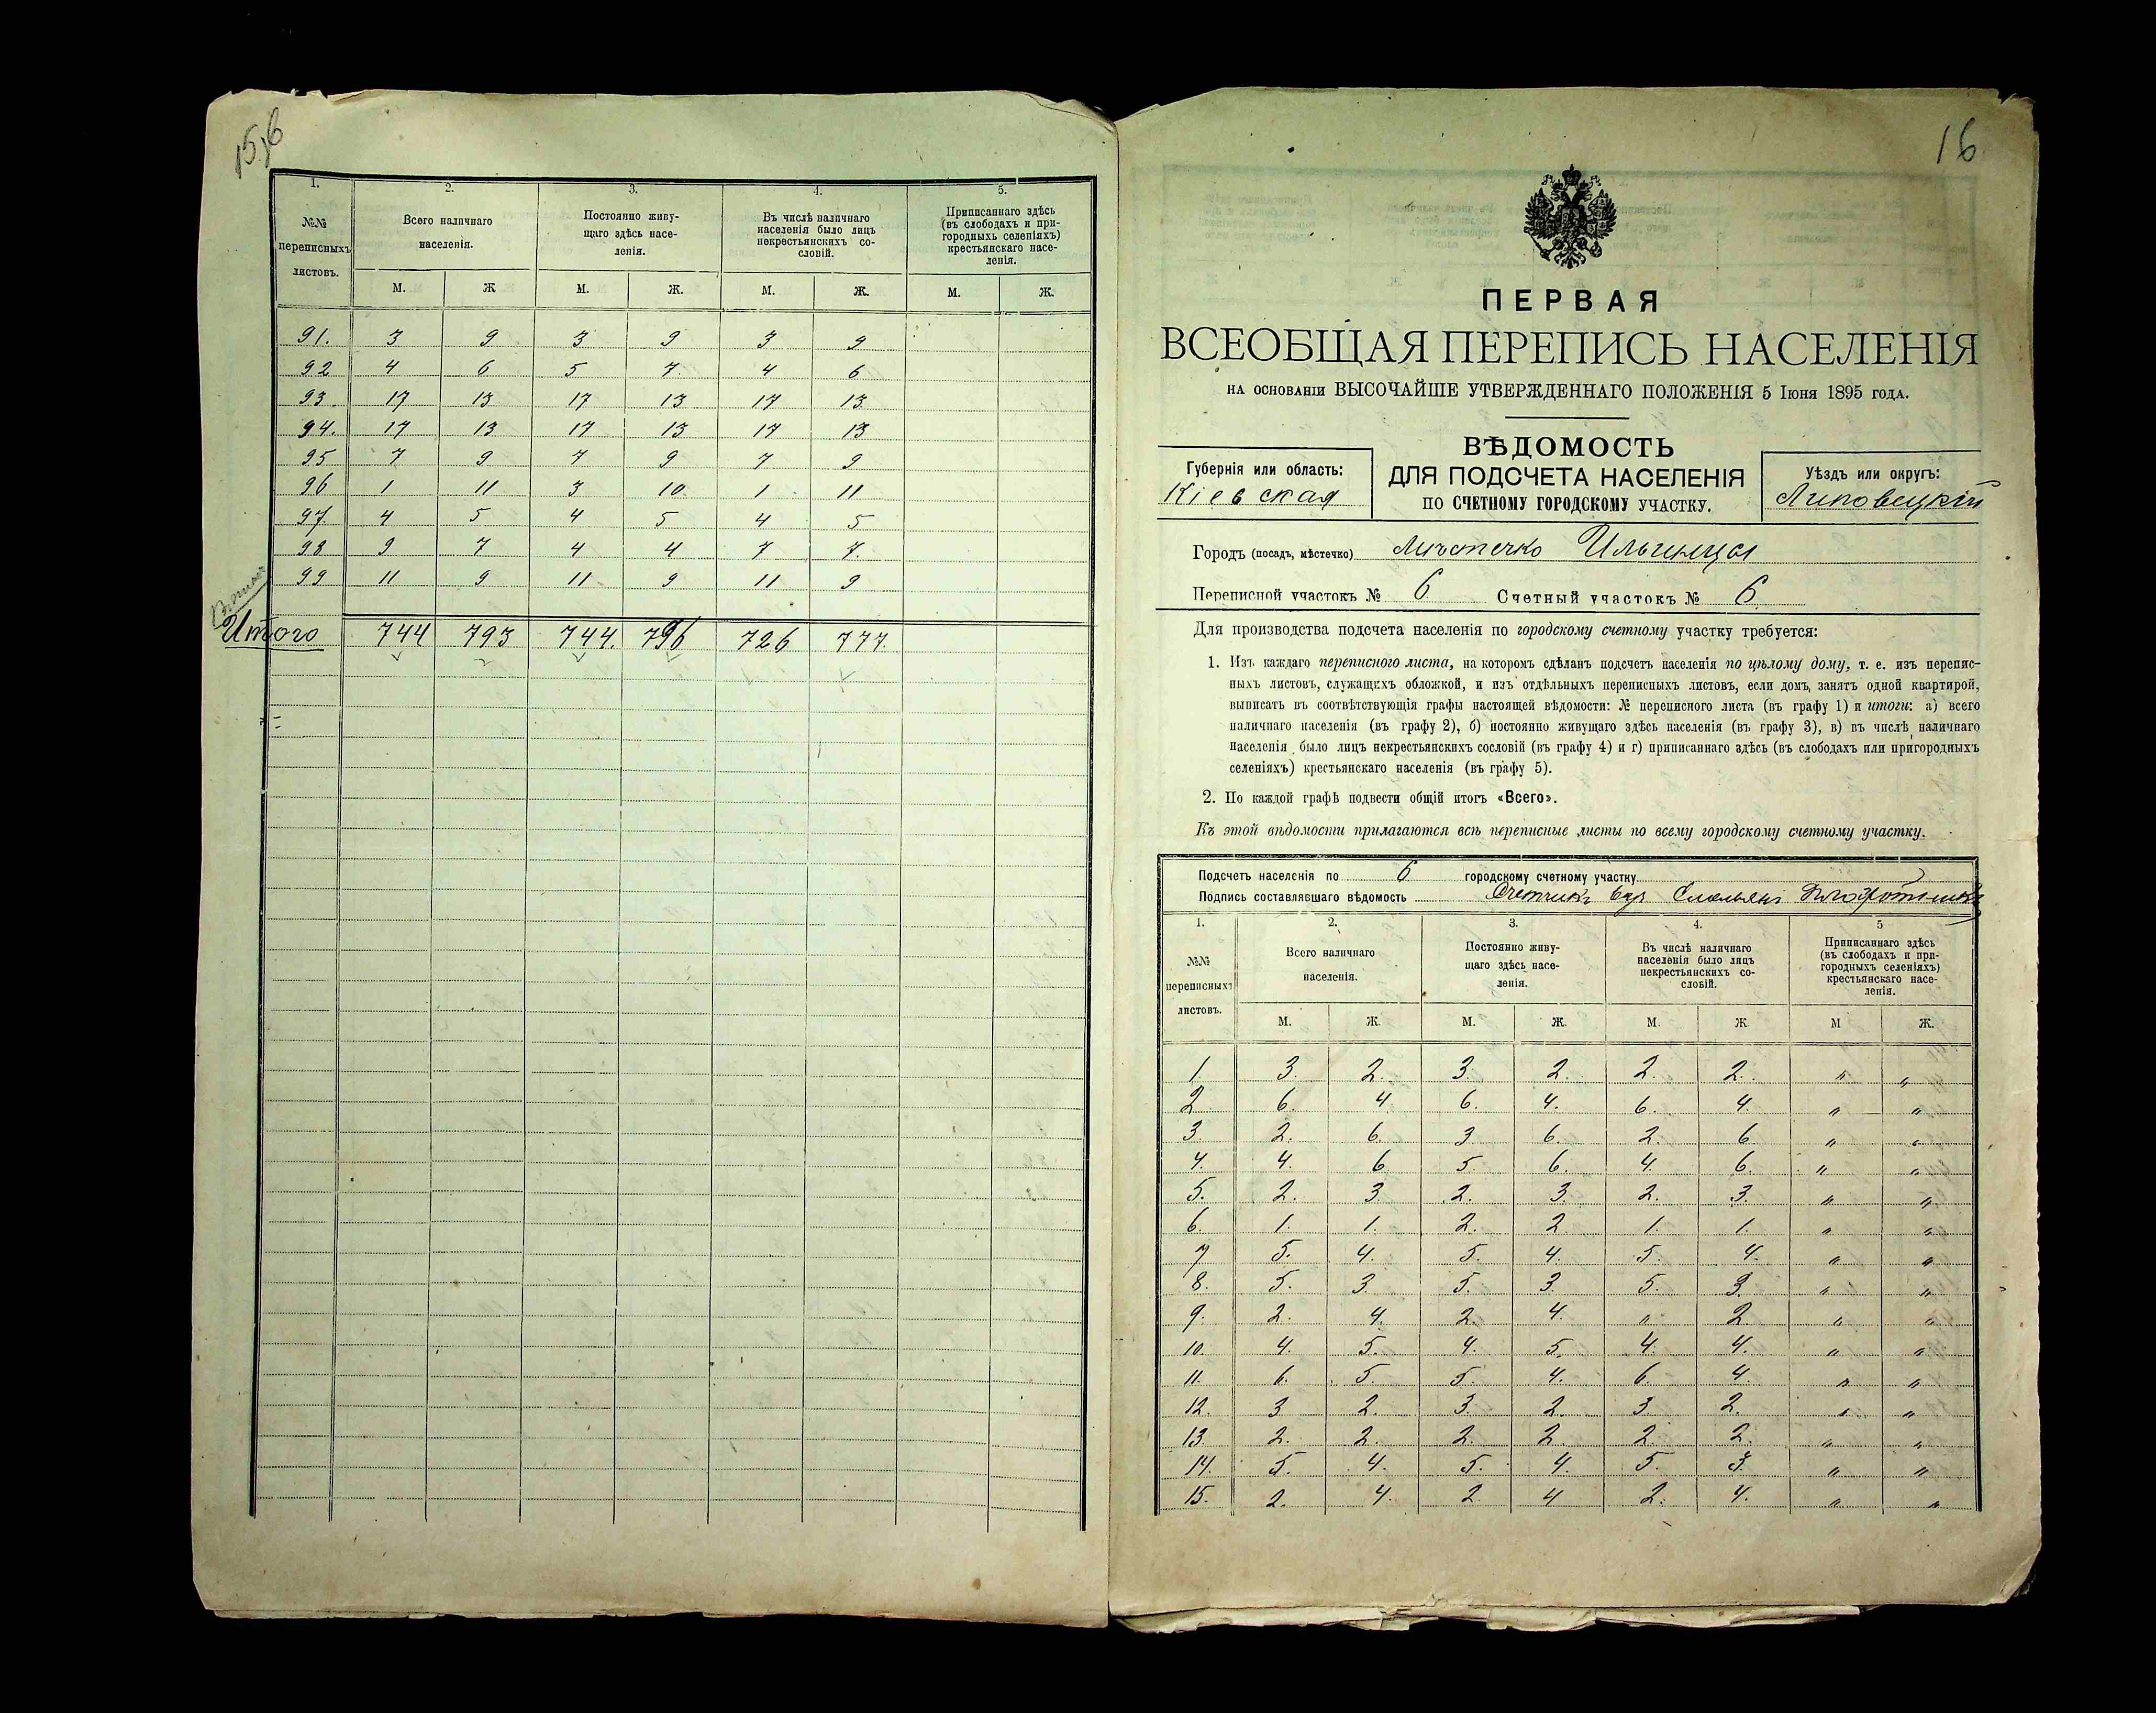 1. 2. 3. 4. 5.
№№ переписныхъ листовъ.
Всего наличнаго населенія.
Постоянно живу-
щаго здѣсь насе-
ленія.
Въ числѣ наличнаго
населенія было лицъ
некрестьянскихъ со-
словій.
Приписаннаго здѣсь
(въ слободахъ и при-
городныхъ селеніяхъ)
крестьянскаго насе-
ленія.
М. Ж М. Ж. М. Ж. М. Ж.
91. 3 9 3 9 3 9
92 4 6 5 7 4 6
93 17 13 17 13 17 13
94. 17 13 17 13 17 13
95 7 9 7 9 7 9
96 1 11 3 10 1 11
97. 4 5 4 5 4 5
98 9 7 4 4 7 7.
99 11 9 11 9 11 9
Итого 744 793 744. 796 726 777.
16
ПЕРВАЯ
ВСЕОБЩАЯ ПЕРЕПИСЬ НАСЕЛЕНІЯ
НА ОСНОВАНІИ ВЫСОЧАЙШЕ УТВЕРЖДЕННАГО ПОЛОЖЕНІЯ 5 Іюня 1895 ГОДА.
ВѢДОМОСТЬ
ДЛЯ ПОДСЧЕТА НАСЕЛЕНІЯ
ПО СЧЕТНОМУ ГОРОДСКОМУ УЧАСТКУ.
Губернія или область:
Кіевская
Уѣздъ или округъ:
Липовецкій
Городъ (посадъ, мѣстечко) Мѣстечко Ильинцы
Переписной участокъ № 6 Счетный участокъ № 6.
Для производства подсчета населенія по городскому счетному участку требуется:
1. Изъ каждаго переписного листа, на которомъ сдѣланъ подсчетъ населенія по цѣлому дому, т. е. изъ перепис-
ныхъ листовъ, служащихъ обложкой, и изъ отдѣльныхъ переписныхъ листовъ, если домъ, занятъ одной квартирой,
выписать въ соотвѣтствующія графы настоящей вѣдомости: № переписного листа (въ графу 1) и итоги: а) всего
наличнаго населенія (въ графу 2), б) постоянно живущаго здѣсь населенія (въ графу 3), в) въ числѣ наличнаго
населенія было лицъ некрестьянскихъ сословій (въ графу 4) и г) приписаннаго здѣсь (въ слободахъ или пригородныхъ
селеніяхъ) крестьянскаго населенія (въ графу 5).
2. По каждой графѣ подвести общій итогъ «Всего».
Къ этой вѣдомости прилагаются всѣ переписные листы по всему городскому счетному участку.
Подсчетъ населенія по 6 городскому счетному участку
Подпись составлявшаго вѣдомость Счетчикъ
1. 2. 3. 4. 5
№№ переписныхъ листовъ.
Всего наличнаго населенія.
Постоянно живу-
щаго здѣсь насе-
ленія.
Въ числѣ наличнаго
населенія было лицъ
некрестьянскихъ со-
словій.
Приписаннаго здѣсь
(въ слободахъ и при-
городныхъ селеніяхъ)
крестьянскаго насе-
ленія.
М. Ж. М. Ж. М. Ж М Ж.
1. 3. 2. 3. 2. 2. 2. " "
2 6. 4 6. 4. 6. 4. " "
3. 2. 6. 3 6. 2. 6 " "
4. 4. 6 5. 6. 4. 6. " "
5. 2. 3 2. 3. 2. 3. " "
6. 1. 1. 2. 2 1. 1. " "
7 5. 4. 5. 4. 5. 4. " "
8. 5. 3. 5. 3. 5. 3. " "
9. 2. 4. 2. 4. " 2 " "
10. 4. 5. 4. 5. 4. 4. " "
11. 6. 5. 5. 4. 6 4 " "
12. 3 2. 3. 2. 3. 2. " "
13. 2. 2. 2. 2 2. 2. " "
14. 5. 4. 5. 4. 5. 3. " "
15. 2. 4. 2. 4 2. 4. " "